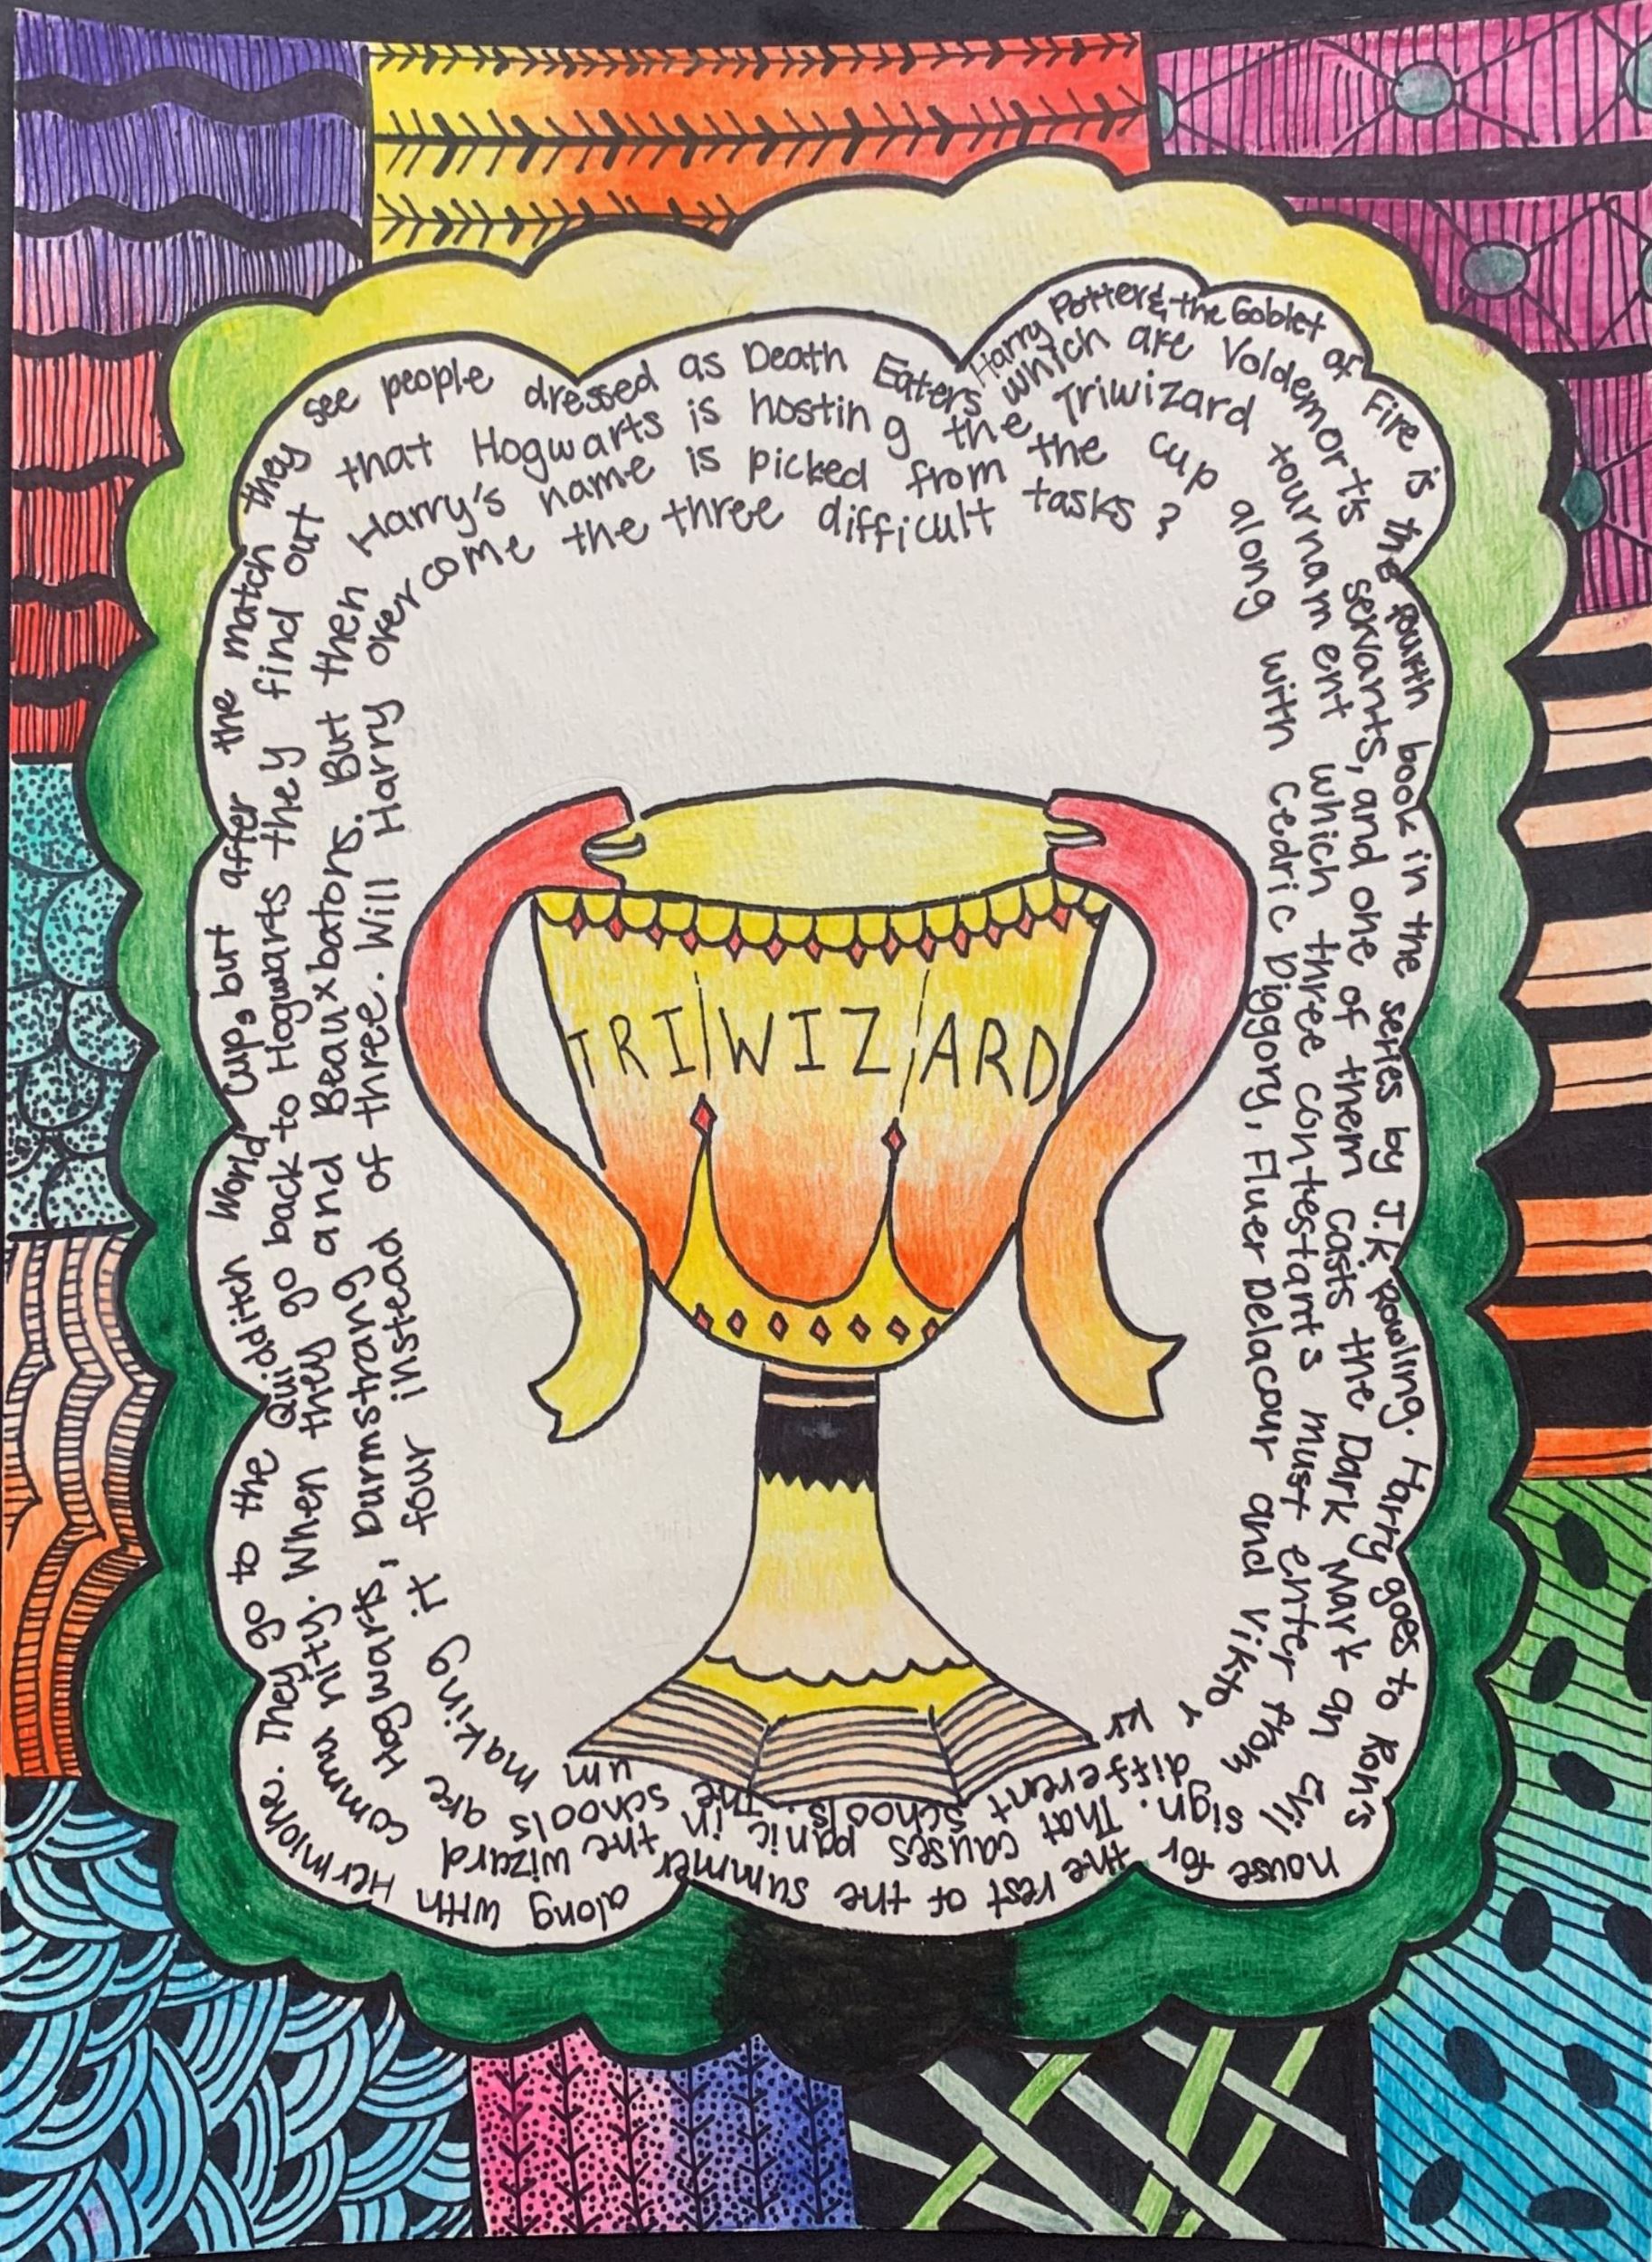 Harry Potter & the Goblet of Fire is the fourth book in the series by J.K Rowling. Harry goes to Ron's house for the rest of the summer along with Hermione. They go to the Quidditch World Cup, but after the match they see people dressed as Death Eaters
which are Voldemort's servants, and one of them casts the Dark Mark an evil sign. That causes panic in the wizard community. When they go back to Hogwarts they find out that Hogwarts is hosting the
Triwizard tournament which three contestants must enter from different schools. The schools are Hogwarts, Durmstrang and Beauxbatons. But then Harry's name is picked from the
cup along with Cedric Diggory, Fluer Delacour and Viktor Krum making it four instead of three. Will Harry overcome the three difficult tasks?
TRIWIZARD